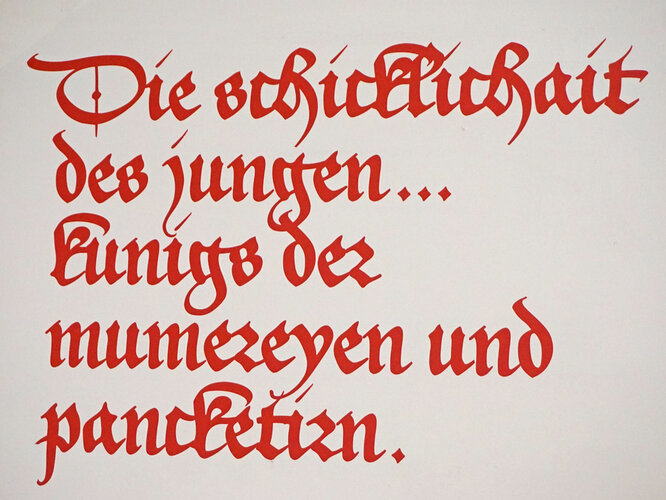 Die schicklichait
des jungen...
kunigs der
mumereyen und
pancketirn.